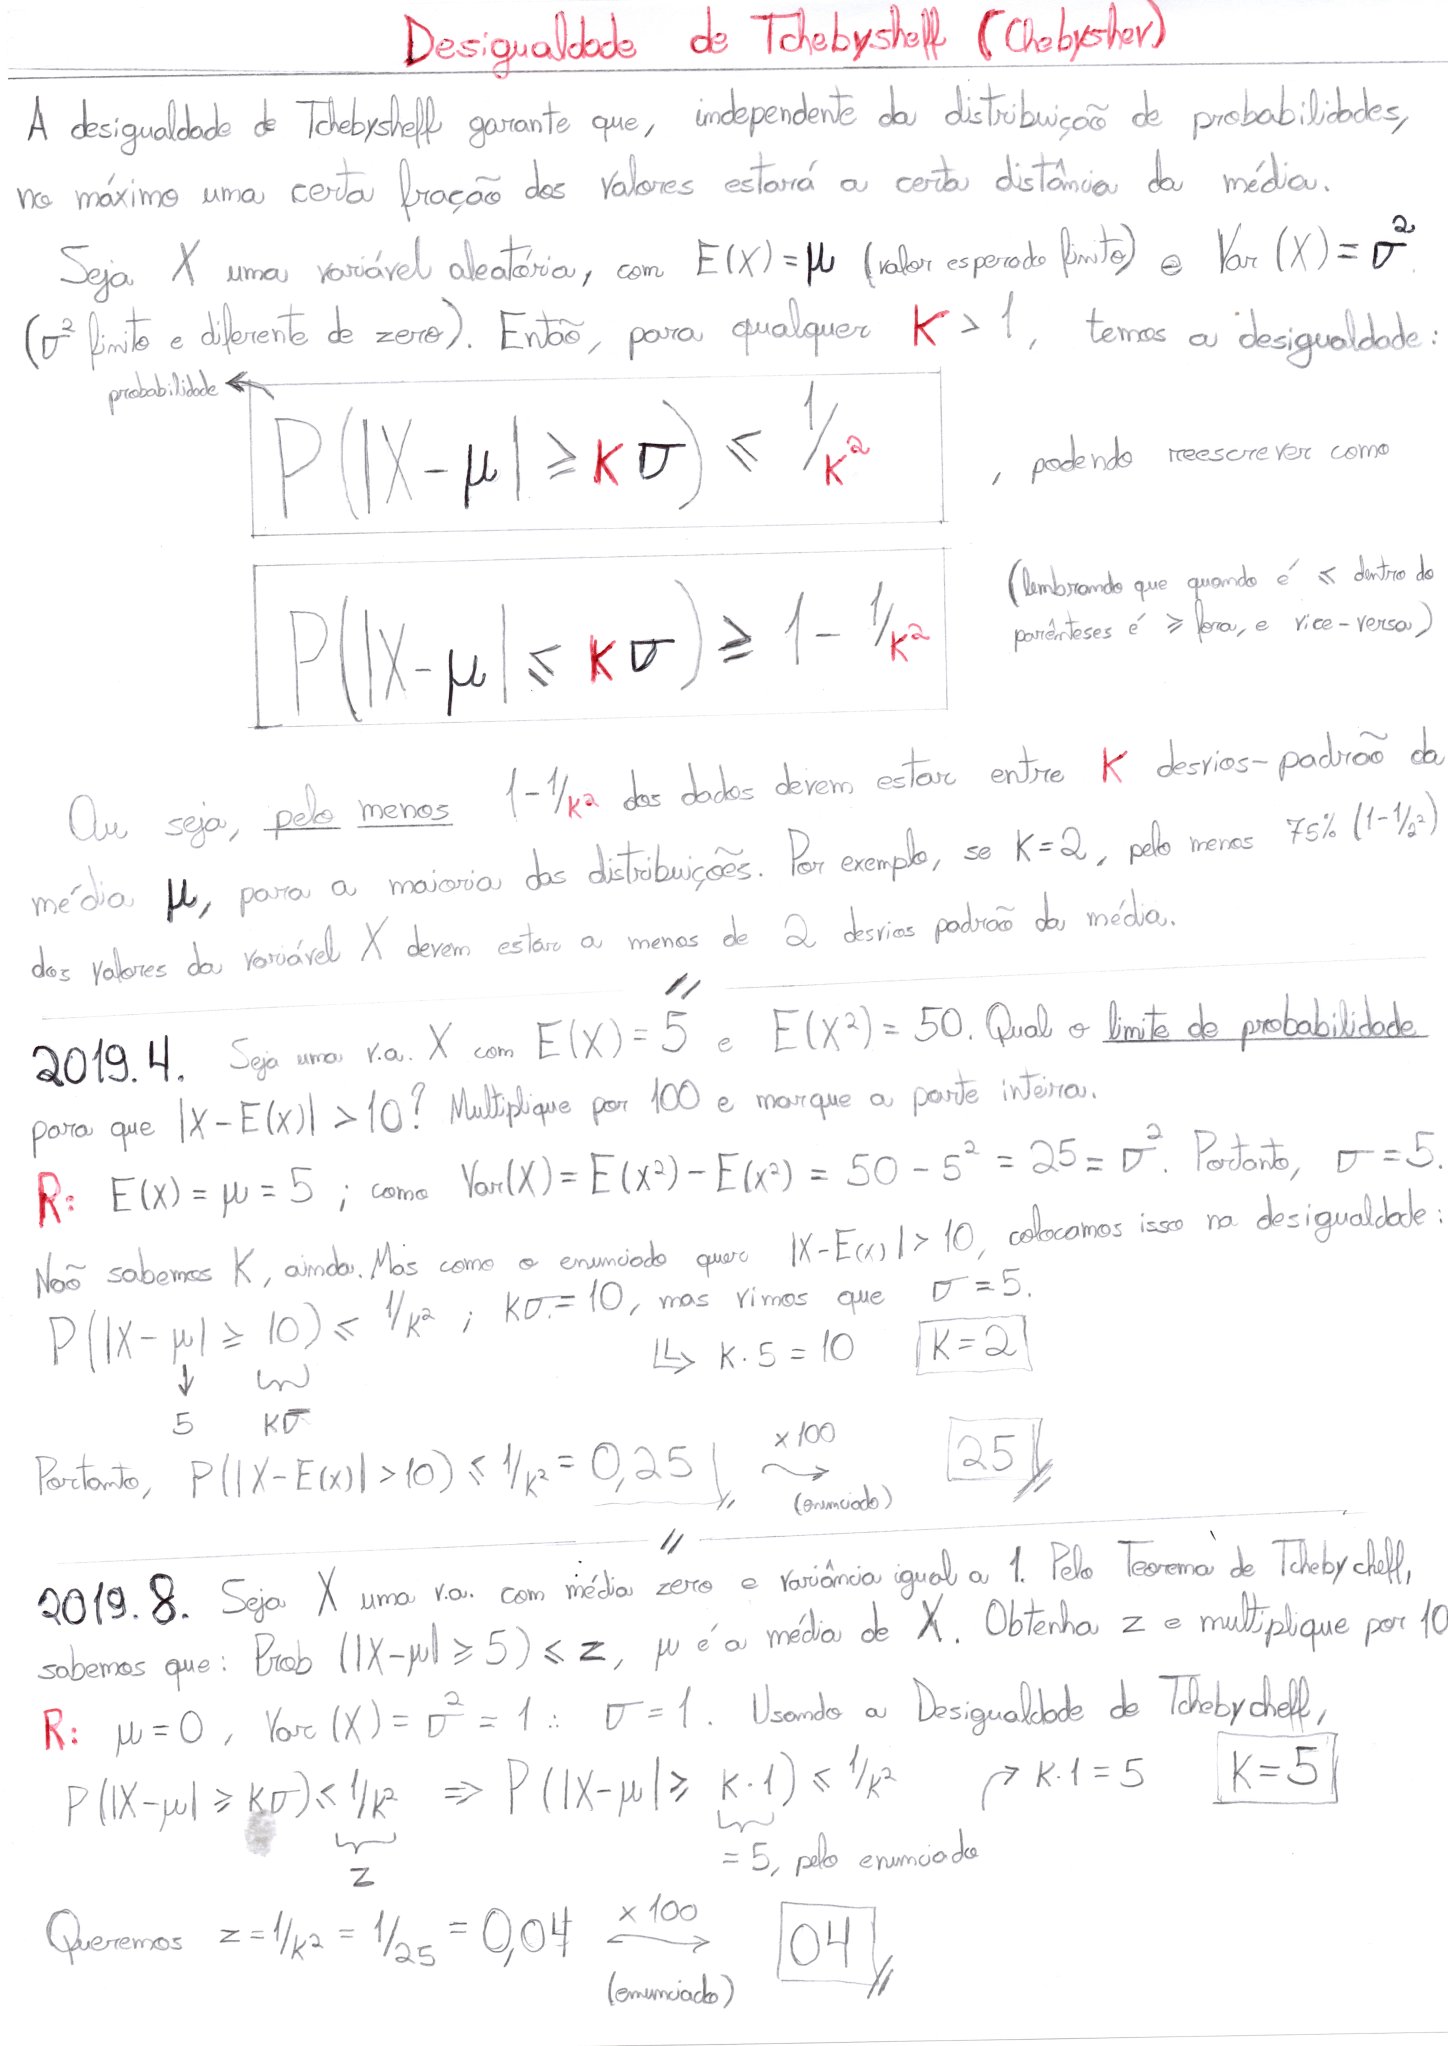 Desigualdade de Tchebysheff (Chebyshev)
A desigualdade de Tchebysheff garante que, independente da distribuição de probabilidades,
no máximo uma certa fração dos valores estará a certa distância da média.
Seja X uma variável aleatória, com E(X) = μ (valor esperado finito) e Var (X) = σ².
(σ² finito e diferente de zero). Então, para qualquer K > 1, temos a desigualdade:
probabilidade
P(|X - μ| ⩾ K σ) ⩽ 1/K² , podendo reescrever como
P(|X - μ| ⩽ K σ) ⩾ 1 - 1/K² (lembrando que quando é ⩽ dentro do
parênteses é ⩾ fora, e vice-versa)
Ou seja, pelo menos 1 - 1/K² dos dados devem estar entre K desvios-padrão da
média μ, para a maioria das distribuições. Por exemplo, se K = 2, pelo menos 75% (1 - 1/2²)
dos valores da variável X devem estar a menos de 2 desvios padrão da média.
2019.4. Seja uma v.a. X com E(X) = 5 e E(X²) = 50. Qual o limite de probabilidade
para que |X - E(X)| > 10? Multiplique por 100 e marque a parte inteira.
R: E(X) = μ = 5 ; como Var(X) = E(X²) - E(X²) = 50 - 5² = 25 = σ². Portanto, σ = 5.
Não sabemos K, ainda. Mas como o enunciado quer |X - E(X)| > 10, colocamos isso na desigualdade:
P(|X - μ| ⩾ 10) ⩽ 1/K² ; Kσ = 10, mas vimos que σ = 5.
↳ K . 5 = 10 K = 2
5 Kσ
Portanto, P(|X - E(X)| > 10) ⩽ 1/K² = 0,25 x 100 25
(enunciado)
2019.8. Seja X uma v.a. com média zero e variância igual a 1. Pelo Teorema de Tchebycheff,
sabemos que: Prob (|X - μ| ⩾ 5) ⩽ z, μ é a média de X. Obtenha z e multiplique por 10
R: μ = 0, Var (X) = σ² = 1 ∴ σ = 1. Usando a Desigualdade de Tchebycheff,
P(|X - μ| ⩾ Kσ) ⩽ 1/K² ⇒ P(|X - μ| ⩾ K . 1) ⩽ 1/K² K . 1 = 5 K = 5
z = 5, pelo enunciado
Queremos z = 1/K² = 1/25 = 0,04 x 100 04
(enunciado)